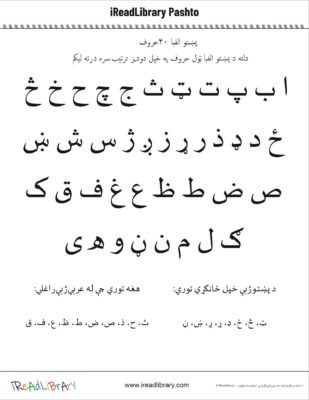 iReadLibrary Pashto
پښتو الفبا ۴۰حروف
دلته د پښتو الفبا ټول حروف په خپل دودیز ترتیب سره درته لیکم
ا ب پ ت ټ ث ج چ ح خ څ
ځ د ډ ذ ر ړ ز ږ ژ س ش ښ
ص ض ط ظ ع غ ف ق ک
ګ ل م ن ڼ و ه ی
د پښتوژبې خپل ځانګړي توري:
ټ، څ، ځ، ډ، ړ، ږ، ښ، ڼ
هغه توري چې له عربي‌ژبې‌راغلي:
ث، ح، ذ، ص، ض، ط، ظ، ع، ف، ق
iReadLibrary
www.ireadlibrary.com